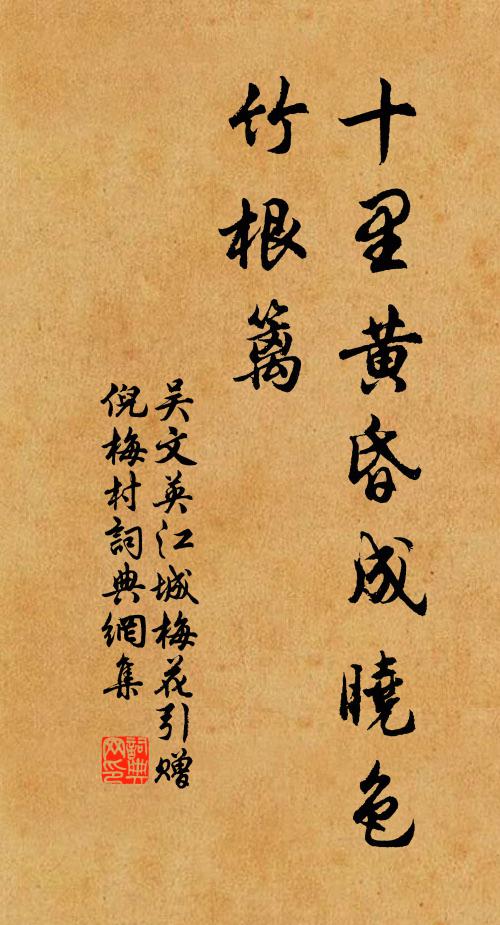 十里黄昏成曉色
竹根籬
吴文英江城梅花引贈
倪梅村詞典網集
詞典網印